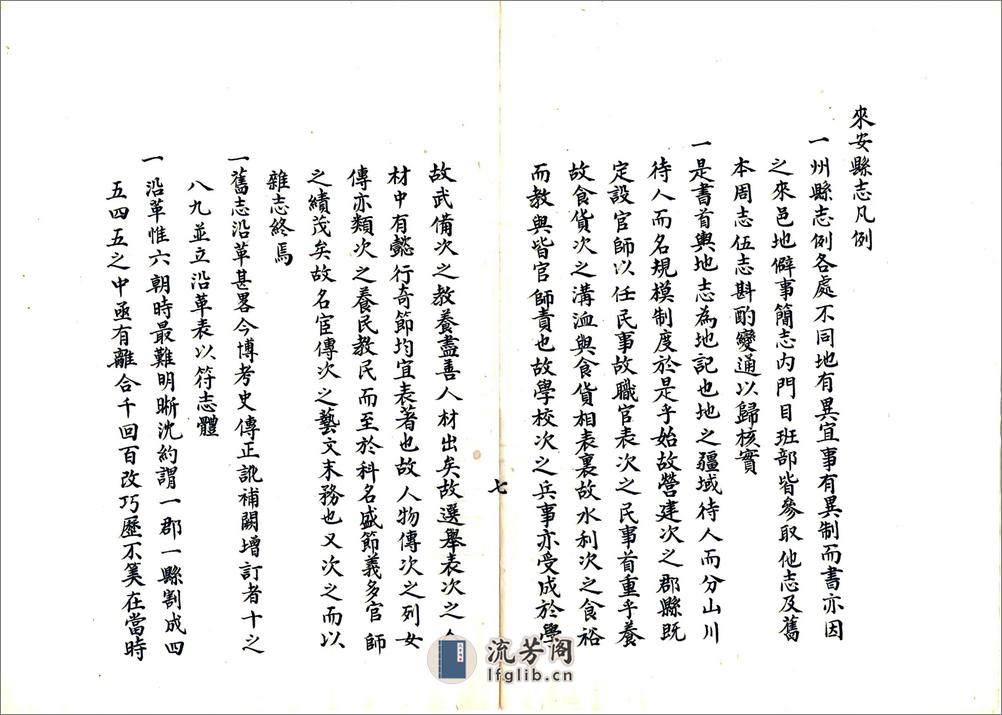 來安縣志凡例
一州縣志例各處不同地有異宜事有異制而書亦因
之來邑地僻事簡志內門目班部皆參取他志及舊
本周志伍志斟酌變通以歸核實
一是書首輿地志為地記也地之疆域待人而分山川
待人而名規模制度於是乎始故營建次之郡縣既
定設官師以任民事故職官表次之民事首重乎養
故食貨次之溝洫與食貨相表裏故水利次之食裕
而教興皆官師責也故學校次之兵事亦受成於學
七
故武備次之教養盡善人材出矣故選舉表次之人
材中有懿行奇節均宜表著也故人物傳次之列女
傳亦類次之養民教民而至於科名盛節義多官師
之績茂矣故名宦傳次之藝文末務也又次之而以
雜志終焉
一舊志沿革甚畧今博考史傳正訛補闕增訂者十之
八九並立沿革表以符志體
一沿革惟六朝時最難明晰沈約謂一郡一縣割成四
五四五之中亟有離合千回百改巧歷不筭在當時
流芳阁
lfglib.cn